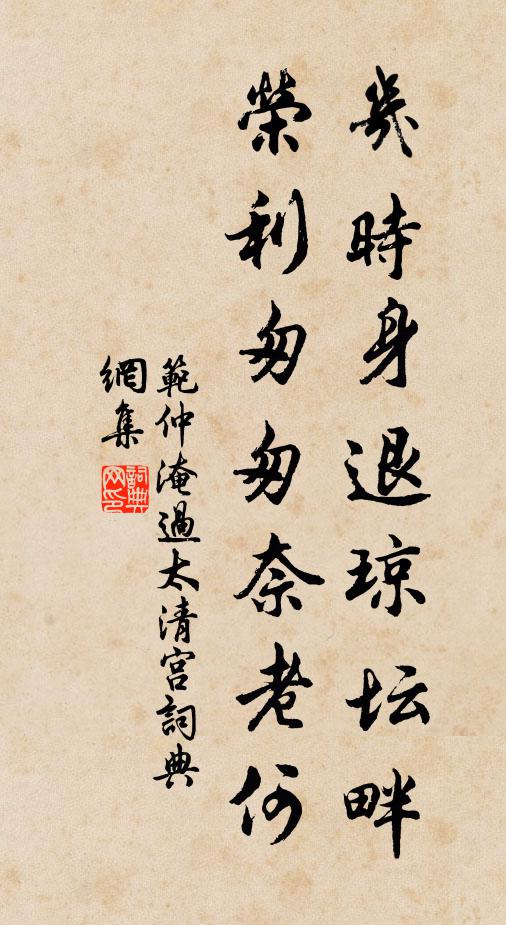 幾時身退琼坛畔
榮利匆匆奈老何
範仲淹過太清宮詞典
網集
詞典网印